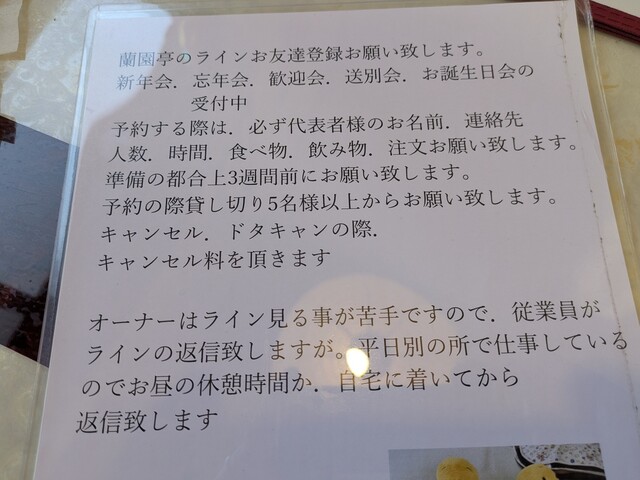 蘭園亭のラインお友達登録お願い致します。
新年会．忘年会．歓迎会．送別会．お誕生日会の
受付中
予約する際は．必ず代表者様のお名前．連絡先
人数．時間．食べ物．飲み物．注文お願い致します。
準備の都合上3週間前にお願い致します。
予約の際貸し切り5名様以上からお願い致します。
キャンセル．ドタキャンの際．
キャンセル料を頂きます
オーナーはライン見る事が苦手ですので．従業員が
ラインの返信致しますが。平日別の所で仕事している
のでお昼の休憩時間か．自宅に着いてから
返信致します